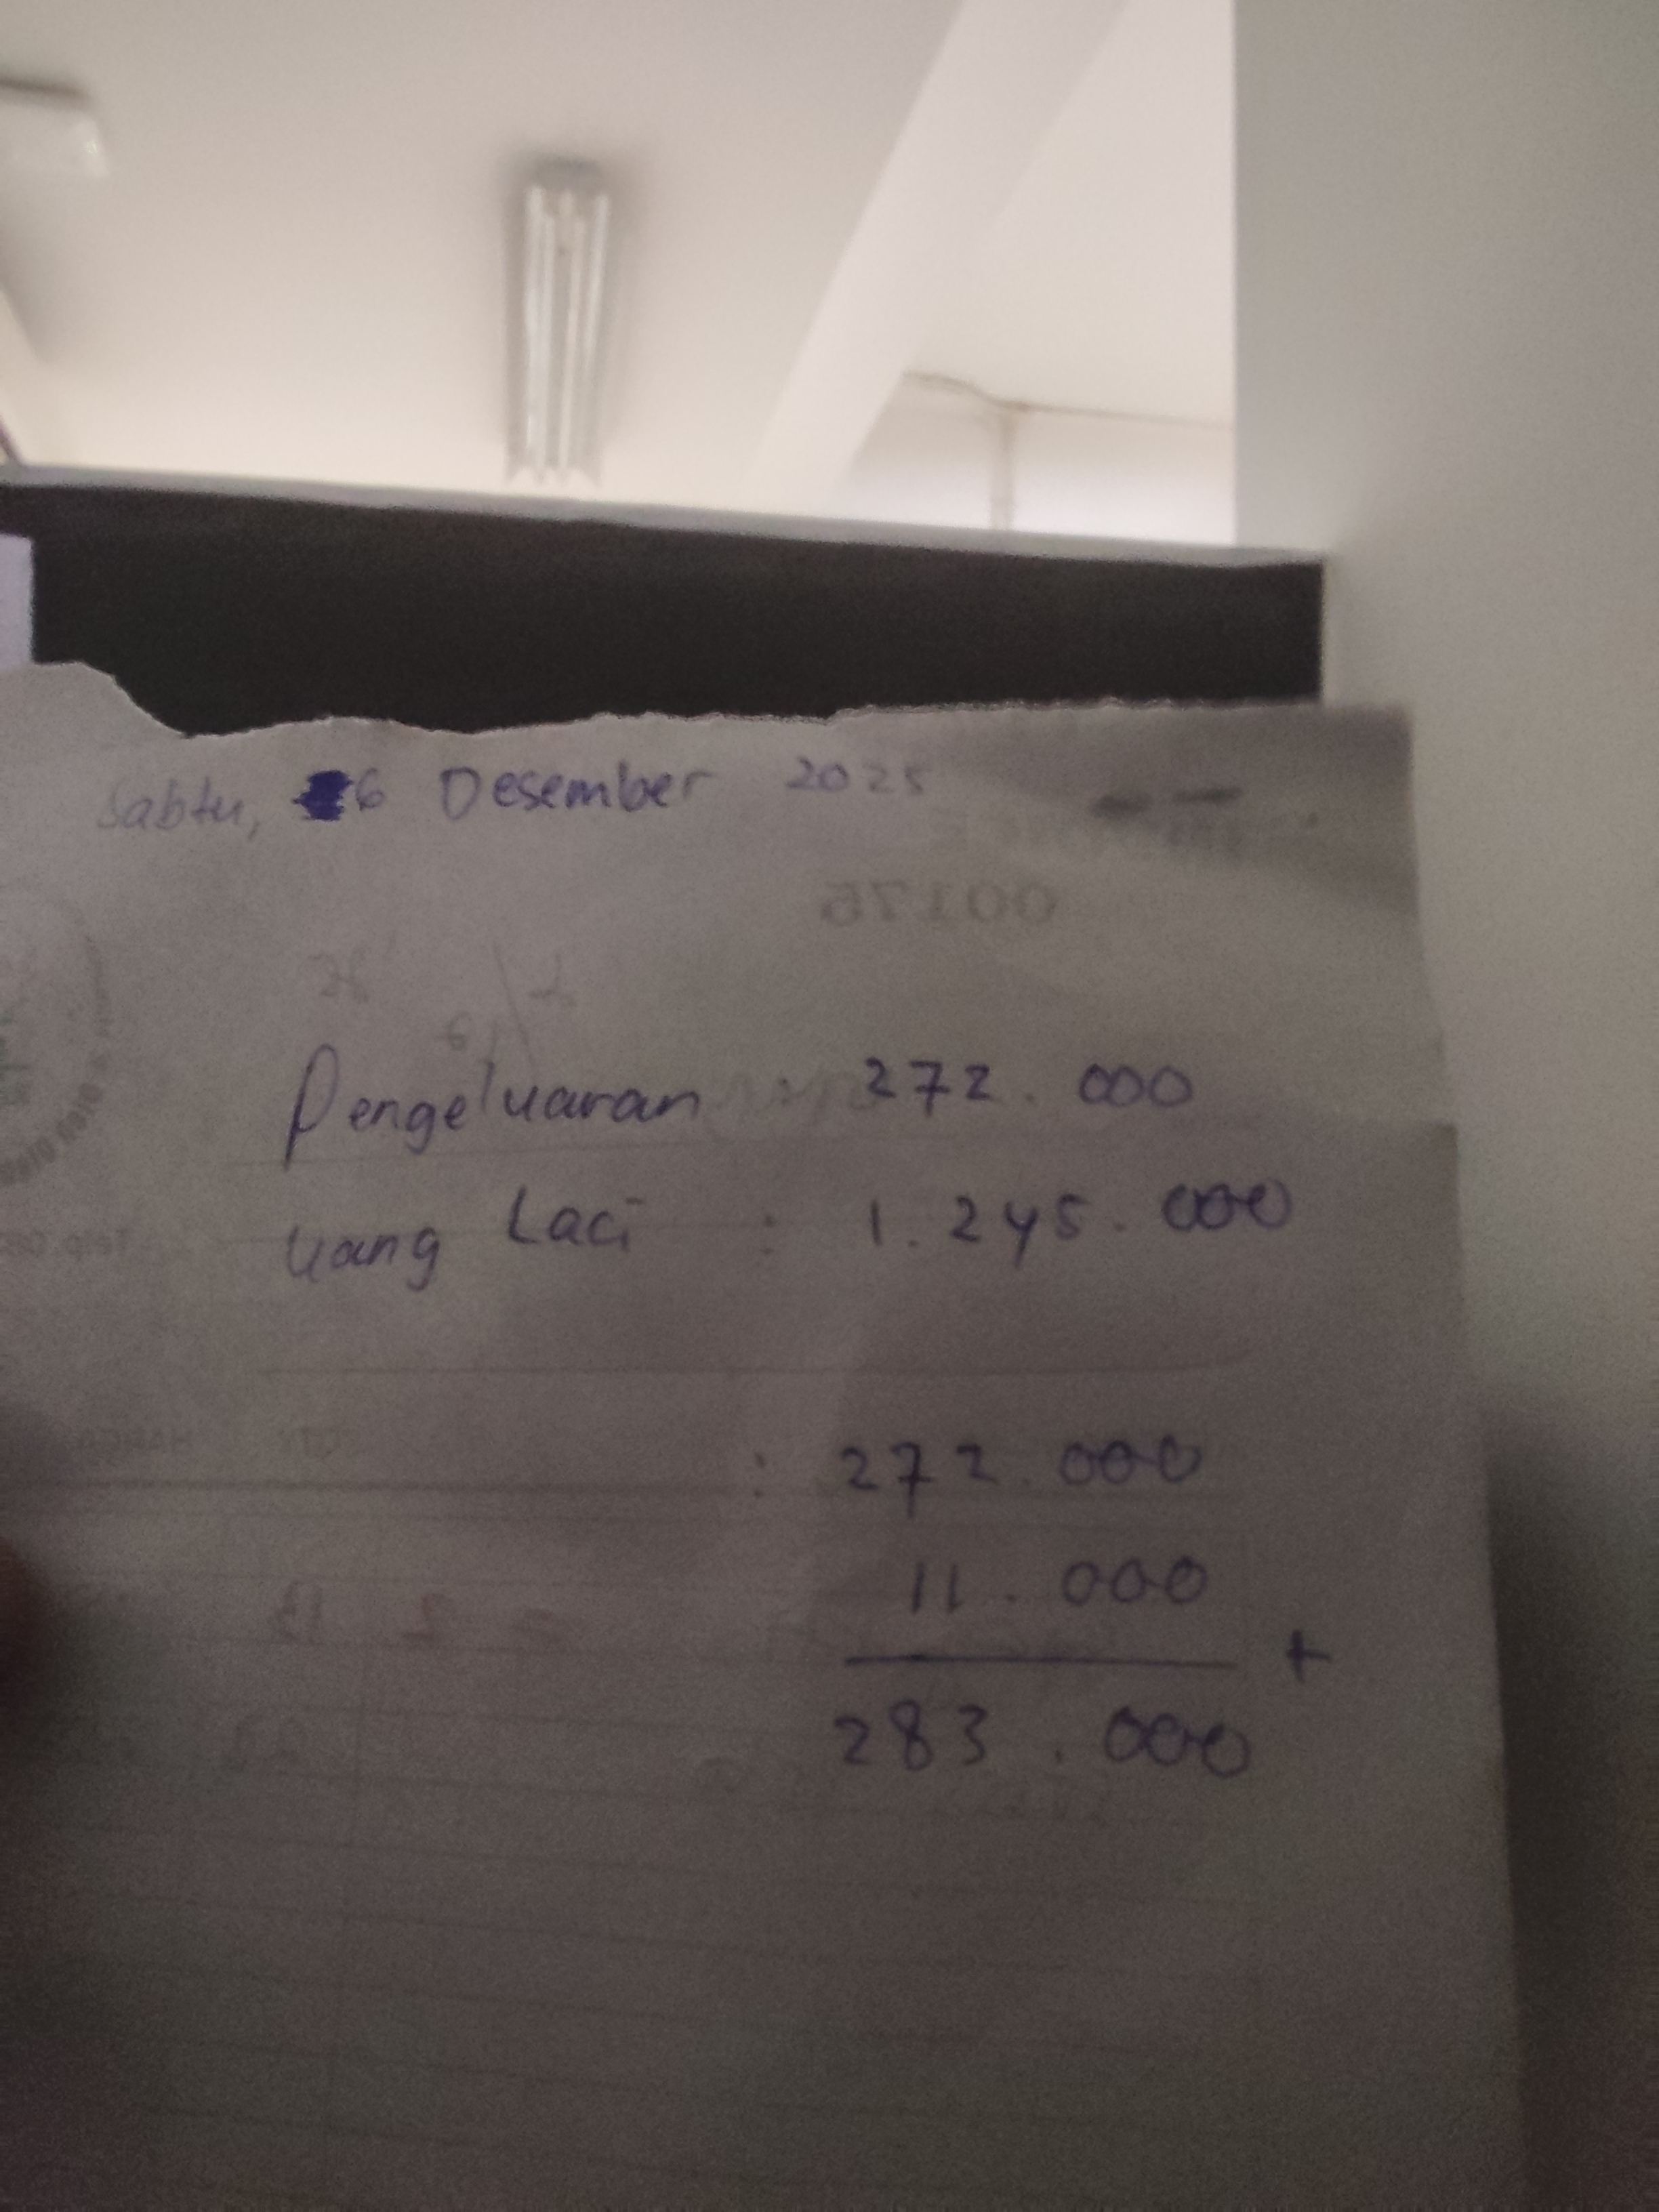 Sabtu, 6 Desember 2025
00175
Pengeluaran : 272.000
Uang Laci : 1.245.000
: 272.000
11.000
+
283.000